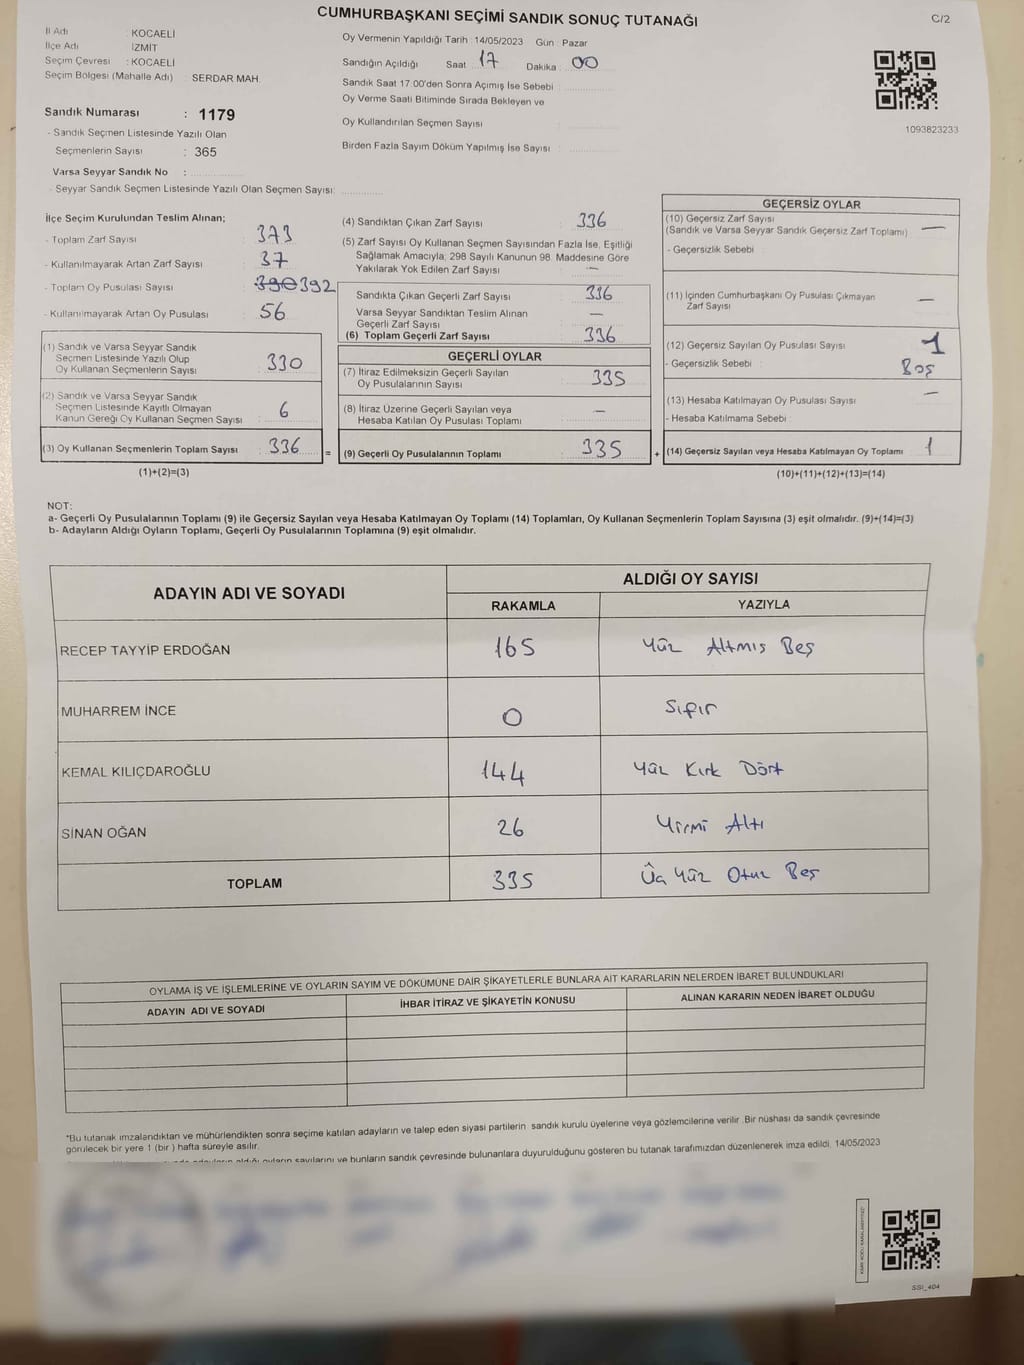 CUMHURBAŞKANI SEÇİMİ SANDIK SONUÇ TUTANAĞI
C/2
İl Adı : KOCAELİ
İlçe Adı : İZMİT
Seçim Çevresi : KOCAELİ
Seçim Bölgesi (Mahalle Adı) : SERDAR MAH.
Sandık Numarası : 1179
- Sandık Seçmen Listesinde Yazılı Olan
Seçmenlerin Sayısı : 365
Varsa Seyyar Sandık No :
- Seyyar Sandık Seçmen Listesinde Yazılı Olan Seçmen Sayısı:
Oy Vermenin Yapıldığı Tarih : 14/05/2023 Gün : Pazar
Sandığın Açıldığı Saat : 17 Dakika : 00
Sandık Saat 17:00'den Sonra Açımış İse Sebebi :
Oy Verme Saati Bitiminde Sırada Bekleyen ve
Oy Kullandırılan Seçmen Sayısı :
Birden Fazla Sayım Döküm Yapılmış İse Sayısı :
1093823233
İlçe Seçim Kurulundan Teslim Alınan;
- Toplam Zarf Sayısı : 373
- Kullanılmayarak Artan Zarf Sayısı : 37
- Toplam Oy Pusulası Sayısı : 390 392
- Kullanılmayarak Artan Oy Pusulası : 56
(1) Sandık ve Varsa Seyyar Sandık
Seçmen Listesinde Yazılı Olup
Oy Kullanan Seçmenlerin Sayısı : 330
(2) Sandık ve Varsa Seyyar Sandık
Seçmen Listesinde Kayıtlı Olmayan
Kanun Gereği Oy Kullanan Seçmen Sayısı : 6
(3) Oy Kullanan Seçmenlerin Toplam Sayısı : 336 =
(1)+(2)=(3)
(4) Sandıktan Çıkan Zarf Sayısı : 336
(5) Zarf Sayısı Oy Kullanan Seçmen Sayısından Fazla İse, Eşitliği
Sağlamak Amacıyla; 298 Sayılı Kanunun 98. Maddesine Göre
Yakılarak Yok Edilen Zarf Sayısı : —
Sandıkta Çıkan Geçerli Zarf Sayısı : 336
Varsa Seyyar Sandıktan Teslim Alınan
Geçerli Zarf Sayısı : —
(6) Toplam Geçerli Zarf Sayısı : 336
GEÇERLİ OYLAR
(7) İtiraz Edilmeksizin Geçerli Sayılan
Oy Pusulalarının Sayısı : 335
(8) İtiraz Üzerine Geçerli Sayılan veya
Hesaba Katılan Oy Pusulası Toplamı : —
(9) Geçerli Oy Pusulalarının Toplamı : 335 +
GEÇERSİZ OYLAR
(10) Geçersiz Zarf Sayısı
(Sandık ve Varsa Seyyar Sandık Geçersiz Zarf Toplamı) : —
- Geçersizlik Sebebi :
(11) İçinden Cumhurbaşkanı Oy Pusulası Çıkmayan
Zarf Sayısı : —
(12) Geçersiz Sayılan Oy Pusulası Sayısı : 1
- Geçersizlik Sebebi : Boş
(13) Hesaba Katılmayan Oy Pusulası Sayısı : —
- Hesaba Katılmama Sebebi :
(14) Geçersiz Sayılan veya Hesaba Katılmayan Oy Toplamı : 1
(10)+(11)+(12)+(13)=(14)
NOT:
a- Geçerli Oy Pusulalarının Toplamı (9) ile Geçersiz Sayılan veya Hesaba Katılmayan Oy Toplamı (14) Toplamları, Oy Kullanan Seçmenlerin Toplam Sayısına (3) eşit olmalıdır. (9)+(14)=(3)
b- Adayların Aldığı Oyların Toplamı, Geçerli Oy Pusulalarının Toplamına (9) eşit olmalıdır.
ADAYIN ADI VE SOYADI
ALDIĞI OY SAYISI
RAKAMLA YAZIYLA
RECEP TAYYİP ERDOĞAN 165 Yüz Altmış Beş
MUHARREM İNCE 0 Sıfır
KEMAL KILIÇDAROĞLU 144 Yüz Kırk Dört
SİNAN OĞAN 26 Yirmi Altı
TOPLAM 335 Üç Yüz Otuz Beş
OYLAMA İŞ VE İŞLEMLERİNE VE OYLARIN SAYIM VE DÖKÜMÜNE DAİR ŞİKAYETLERLE BUNLARA AİT KARARLARIN NELERDEN İBARET BULUNDUKLARI
ADAYIN ADI VE SOYADI İHBAR İTİRAZ VE ŞİKAYETİN KONUSU ALINAN KARARIN NEDEN İBARET OLDUĞU
*Bu tutanak imzalandıktan ve mühürlendikten sonra seçime katılan adayların ve talep eden siyasi partilerin sandık kurulu üyelerine veya gözlemcilerine verilir. Bir nüshası da sandık çevresinde
görülecek bir yere 1 (bir) hafta süreyle asılır.
oyların sayılarını ve bunların sandık çevresinde bulunanlara duyurulduğunu gösteren bu tutanak tarafımızdan düzenlenerek imza edildi. 14/05/2023
SSI_404